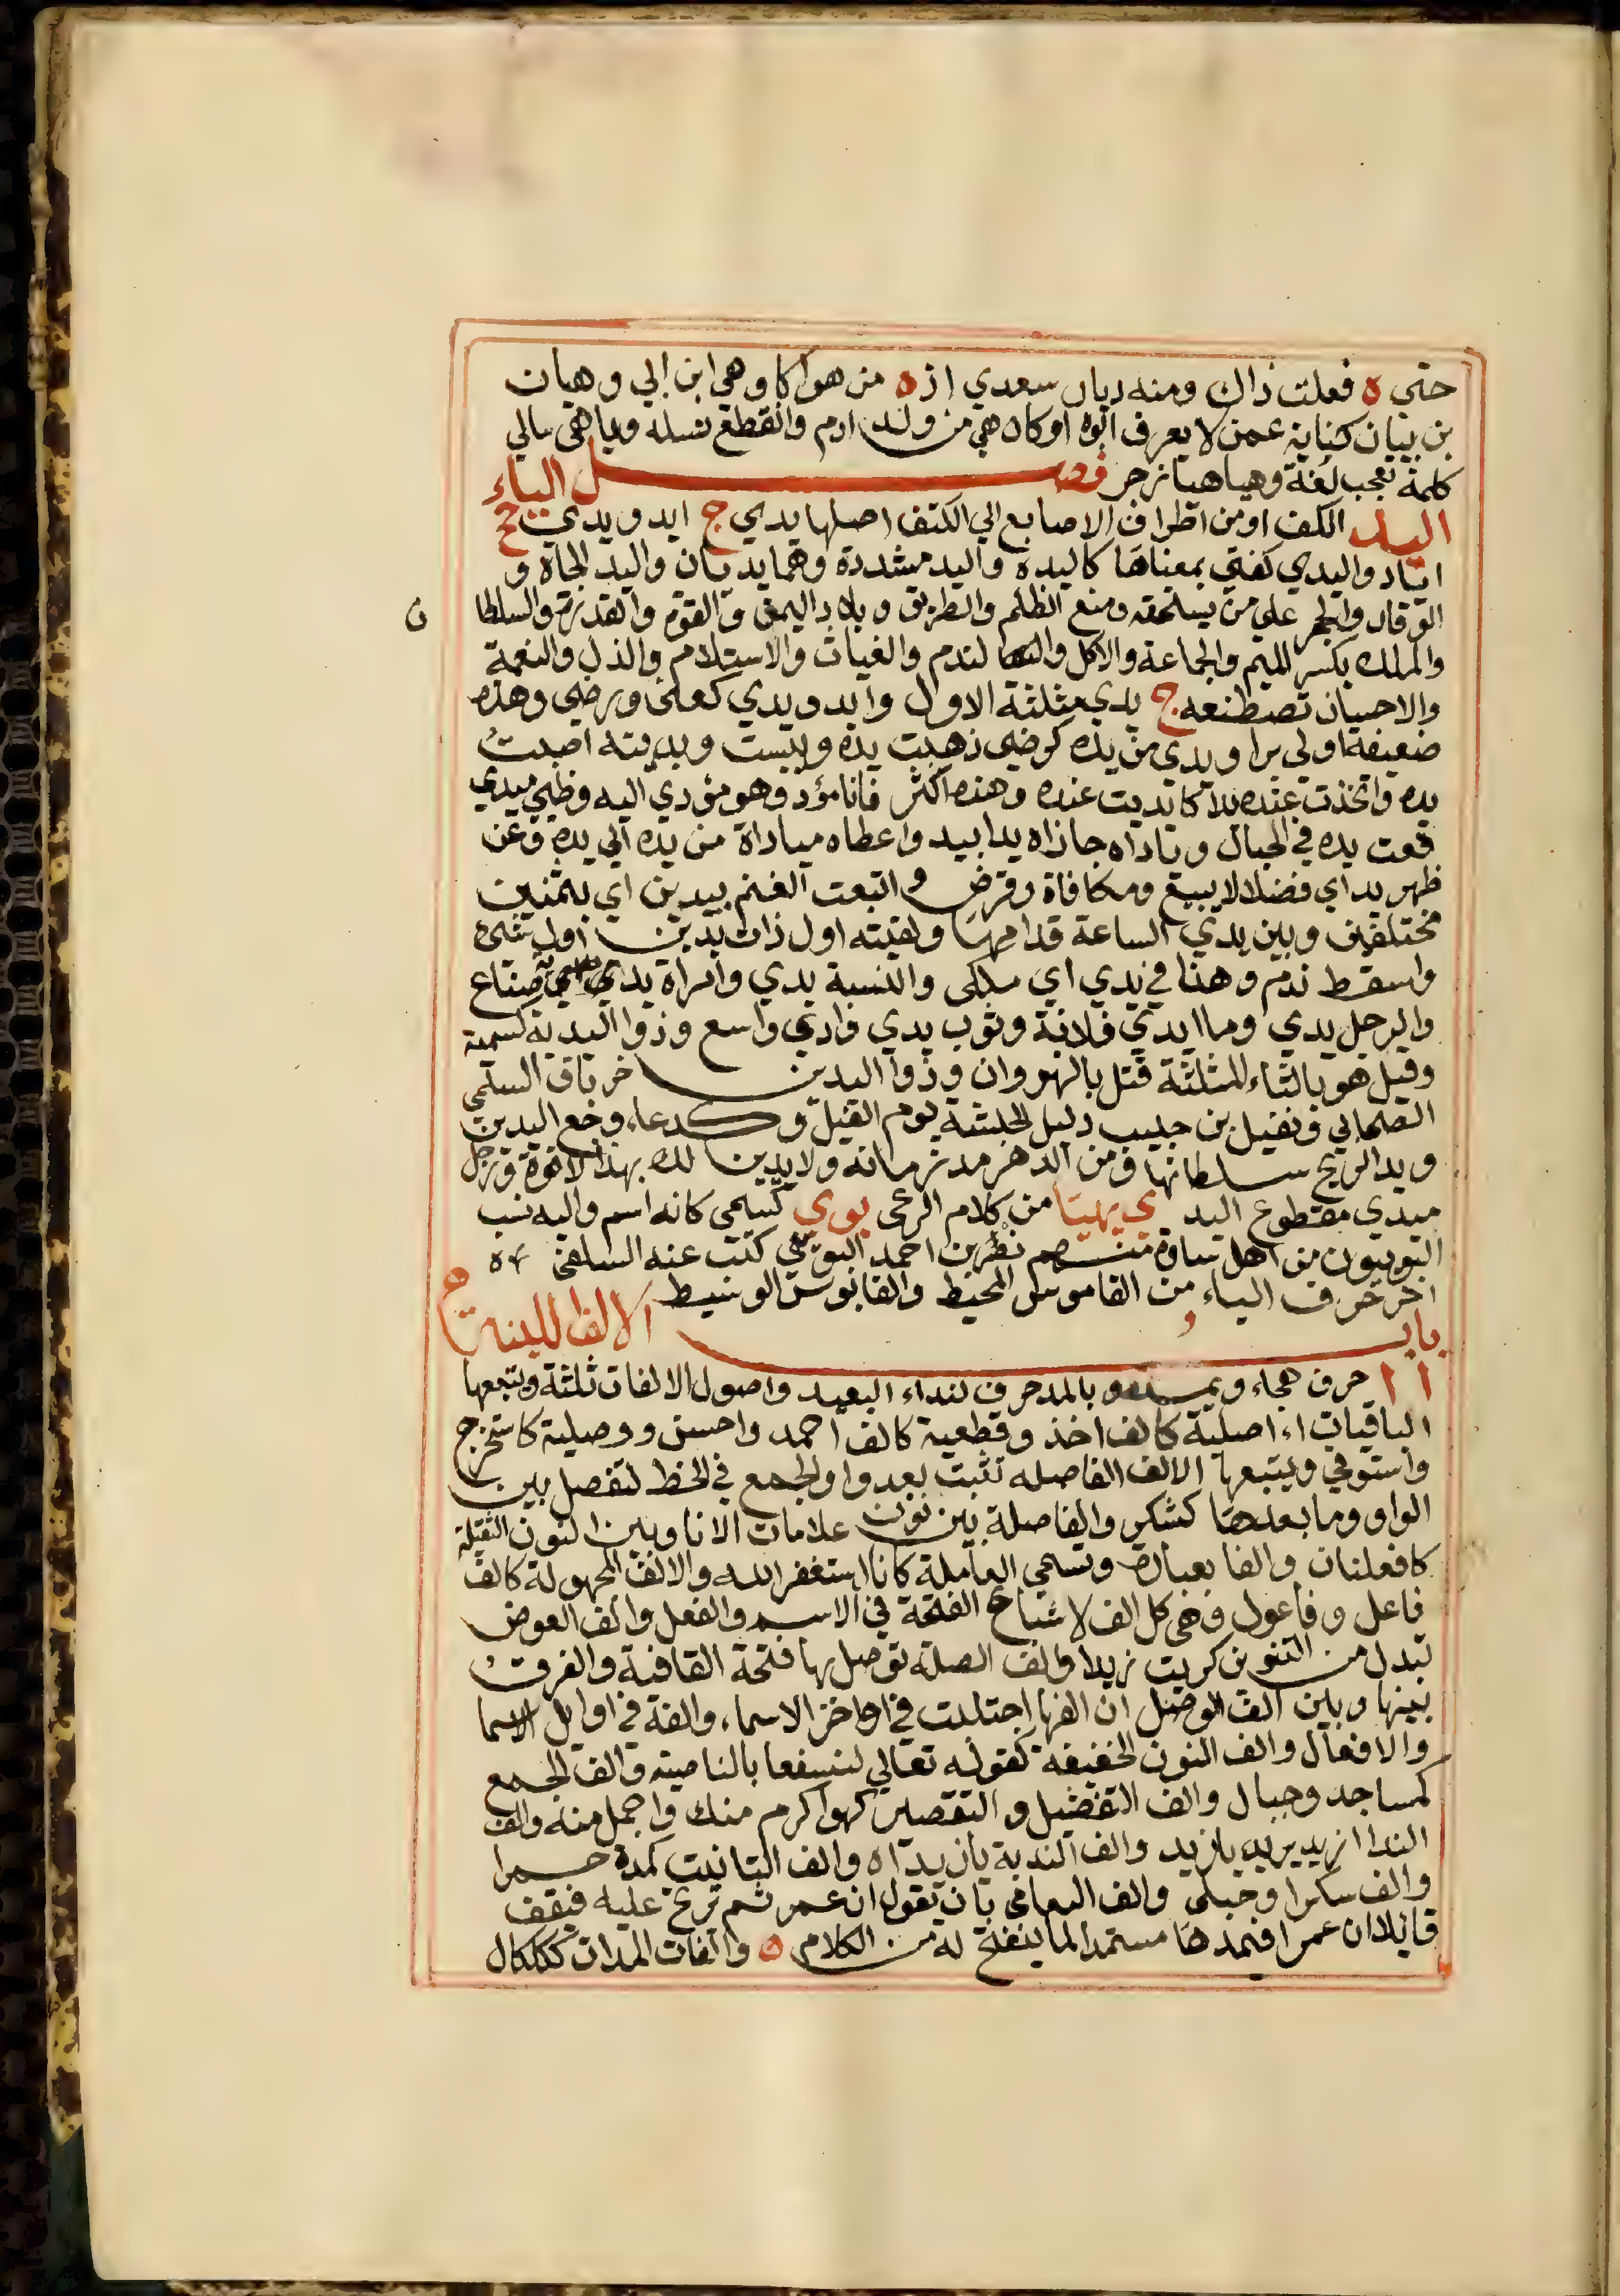 حتى ه فعلت ذاك ومنه ديار سعدي اذه من هواكا وهي ابن ابي وهيان
بن بيان كناية عمن لا يعرف ابوه او كان هي من ولد ادم وانقطع نسله وياهي مالي
كلمة تعجب لغة وهيا هيا زجر فصل الياء
اليد الكف او من اطراف الاصابع الي الكتف اصلها يدي ج ايد ويدي جج
اياد واليدي كفتي بمعناها كاليده واليد مشددة وهما يديان واليد الجاه و
الوقار والحجر علي من يستحقه ومنع الظلم والطريق وبلاد اليمن والقوة والقدرة والسلطا
ن
والملك بكسر الميم والجماعة والاكل والندم والغياث والاستلام والذل والنعمة
والاحسان تصطنعه ج يدي مثلثة الاول وايد ويدي كعنى ورضي وهذه
ضعيفة اولي برا ويدي من يده كرضي ذهبت يده ويبست ويديته اصبت
يده واتخذت عنده يدا كايديت عنده وهذه اكثر فانا مؤد وهو مؤدي اليه وظبي ميدي
وقعت يده في الحبال وياداه جازاه يدا بيد واعطاه مياداة من يده الي يده وعن
ظهر يد اي فضلا لا ببيع ومكافاة وقرض و ابتعت الغنم بيدين اي بثمنين
مختلفين وبين يدي الساعة قدامها ولقيته اول ذات يدين اول شئ
واسقط ندم وهذا في يدي اي ملكي والنسبة يدي وامراة يدية صناع
والرجل يدي وما ايدي فلانة وثوب يدي وادي واسع وذوا اليدية كسمية
وقيل هو بالثاء المثلثة قتل بالنهروان وذوا اليدين خرباق السلمي
الصحابي ونفيل بن حبيب دليل الحبشة يوم الفيل وكدعاء وجع اليدين
ويد الريح سلطانها ومن الدهر مد زمانه ولا يدين لك بهذا لا قوة ورجل
ميدي مقطوع اليد ي يهيا من كلام الرعي يوي كسمي كانه اسم واليه نسب
اليوييون من اهل ساوة منهم نصر بن احمد اليويي كتب عنه السلفي
اخر حرف الياء من القاموس المحيط والقابوس الوسيط
باب الالف اللينة
ا ا حرف هجاء ويمد و بالمد حرف لنداء البعيد واصول الالفات ثلثة ويتبعها
الباقيات اء اصلية كالف اخذ وقطعية كالف احمد واحسن ووصلية كاستخرج
واستوفي ويتبعها الالف الفاصله تثبت بعد واو الجمع في الخط لتفصل بين
الواو وما بعدها كشكر والفاصلة بين نون علامات الانا وبين النون الثقيلة
كافعلنان والفا بعبارة وتسمي العاملة كانا استغفر الله والالف المجهولة كالف
فاعل وفاعول وهي كل الف لاشباع الفتحة في الاسم والفعل والف العوض
تبدل من التنوين كريت زيدا والف الصلة توصل بها فتحة القافية والفرق
بينها وبين الف الوصل ان الفها اجتلبت في اواخر الاسماء والفه في اوايل الاسما
والافعال والف النون الخفيفة كقوله تعالي لنسفعا بالناصيه والف الجمع
كمساجد وجبال والف التفضيل و التقصير كهو اكرم منك واجمل منه والف
الندا ازيد يريد يازيد والف الندبة يازيداه والف التانيث كمدة حمرا
والف سكرا وحبلى والف التعامي بان تقول ان عمر ثم ترتج عليه فتقف
قايلا ان عمرا فتمدها مستمدا لما ينفتح له من الكلام ه والفات المدات ككلكال